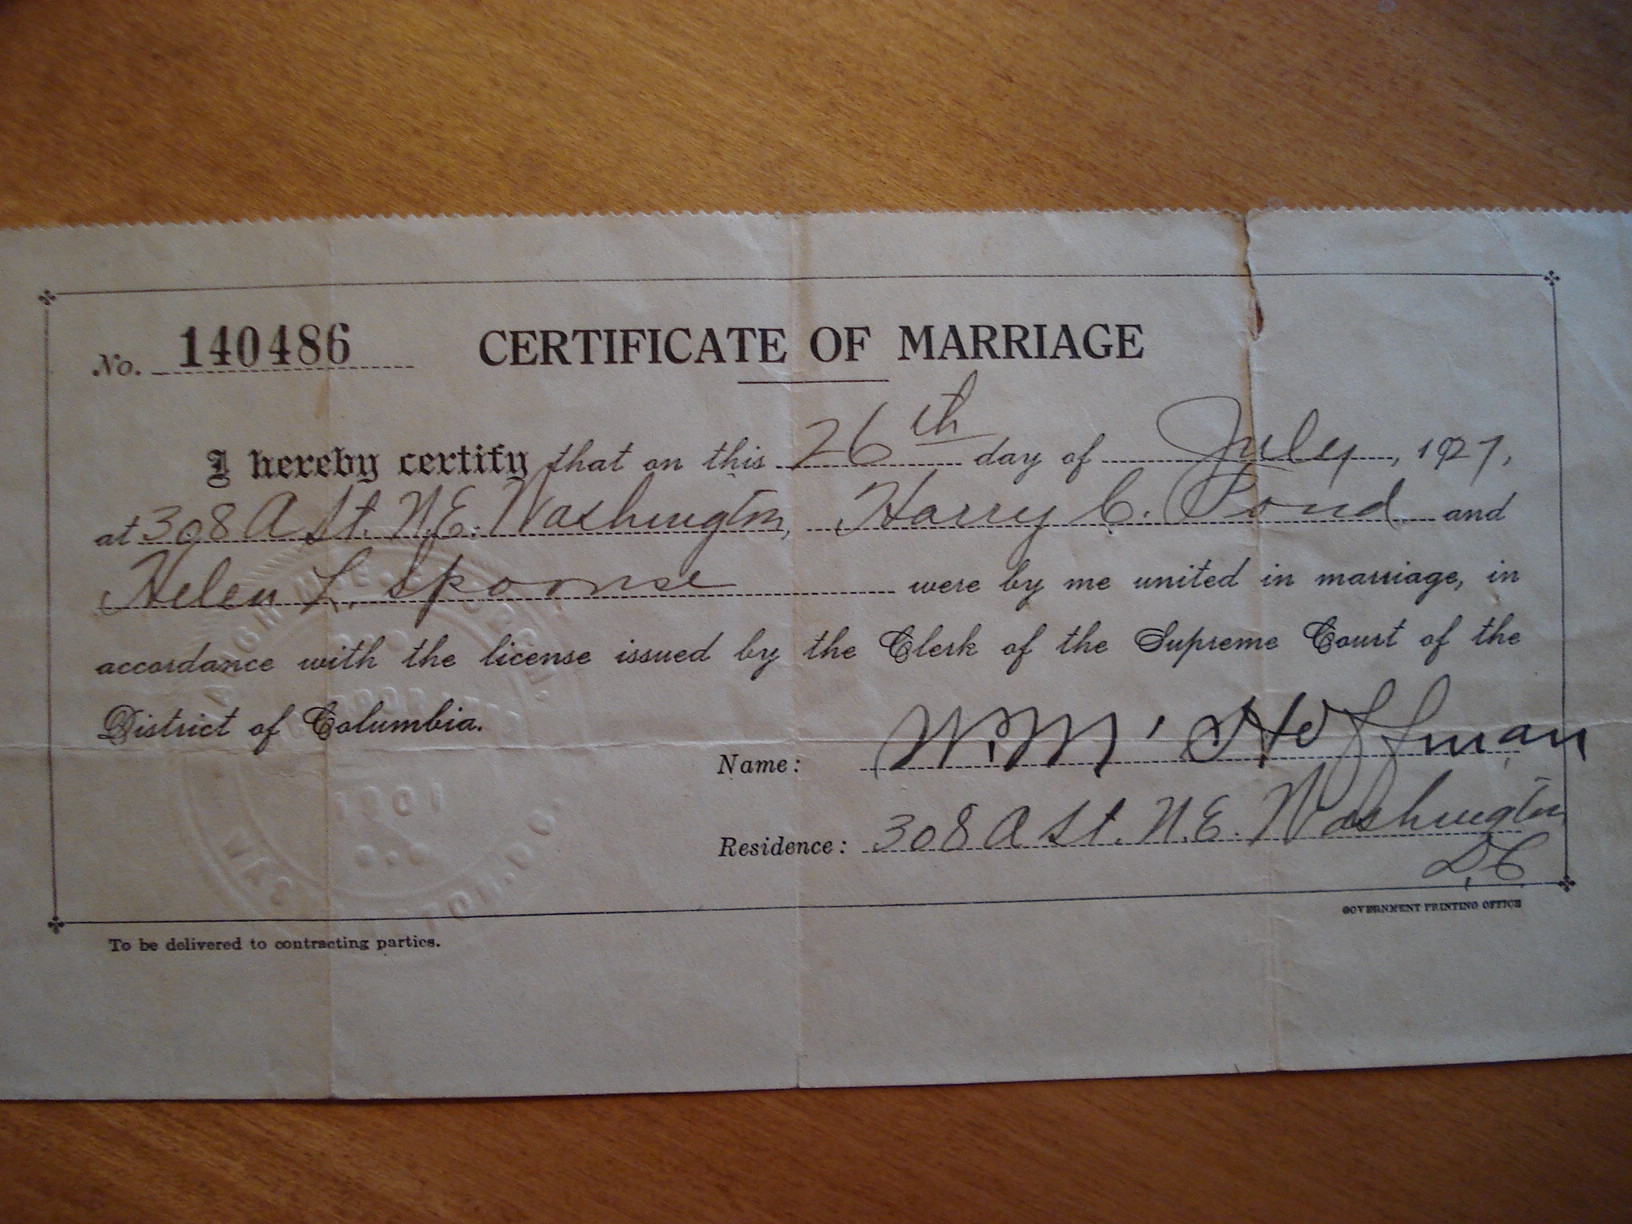 No. 140486 CERTIFICATE OF MARRIAGE
I hereby certify that on this 26th day of July, 1927,
at 308 A St. N.E. Washington, Harry C. Pond and
Helen L. Sponse were by me united in marriage, in
accordance with the license issued by the Clerk of the Supreme Court of the
District of Columbia.
Name: Wm. Hoffman
Residence: 308 A St. N.E. Washington
D.C.
1901
GOVERNMENT PRINTING OFFICE
To be delivered to contracting parties.